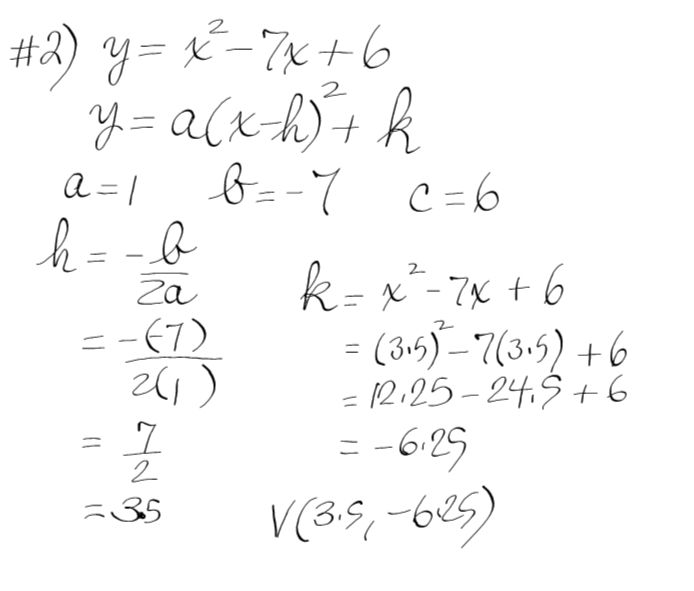 #2) y = x² - 7x + 6
y = a(x-h)² + k
a = 1 b = -7 c = 6
h = -b/2a
= -(-7)/2(1)
= 7/2
= 3.5
k = x² - 7x + 6
= (3.5)² - 7(3.5) + 6
= 12.25 - 24.5 + 6
= -6.25
V(3.5, -6.25)